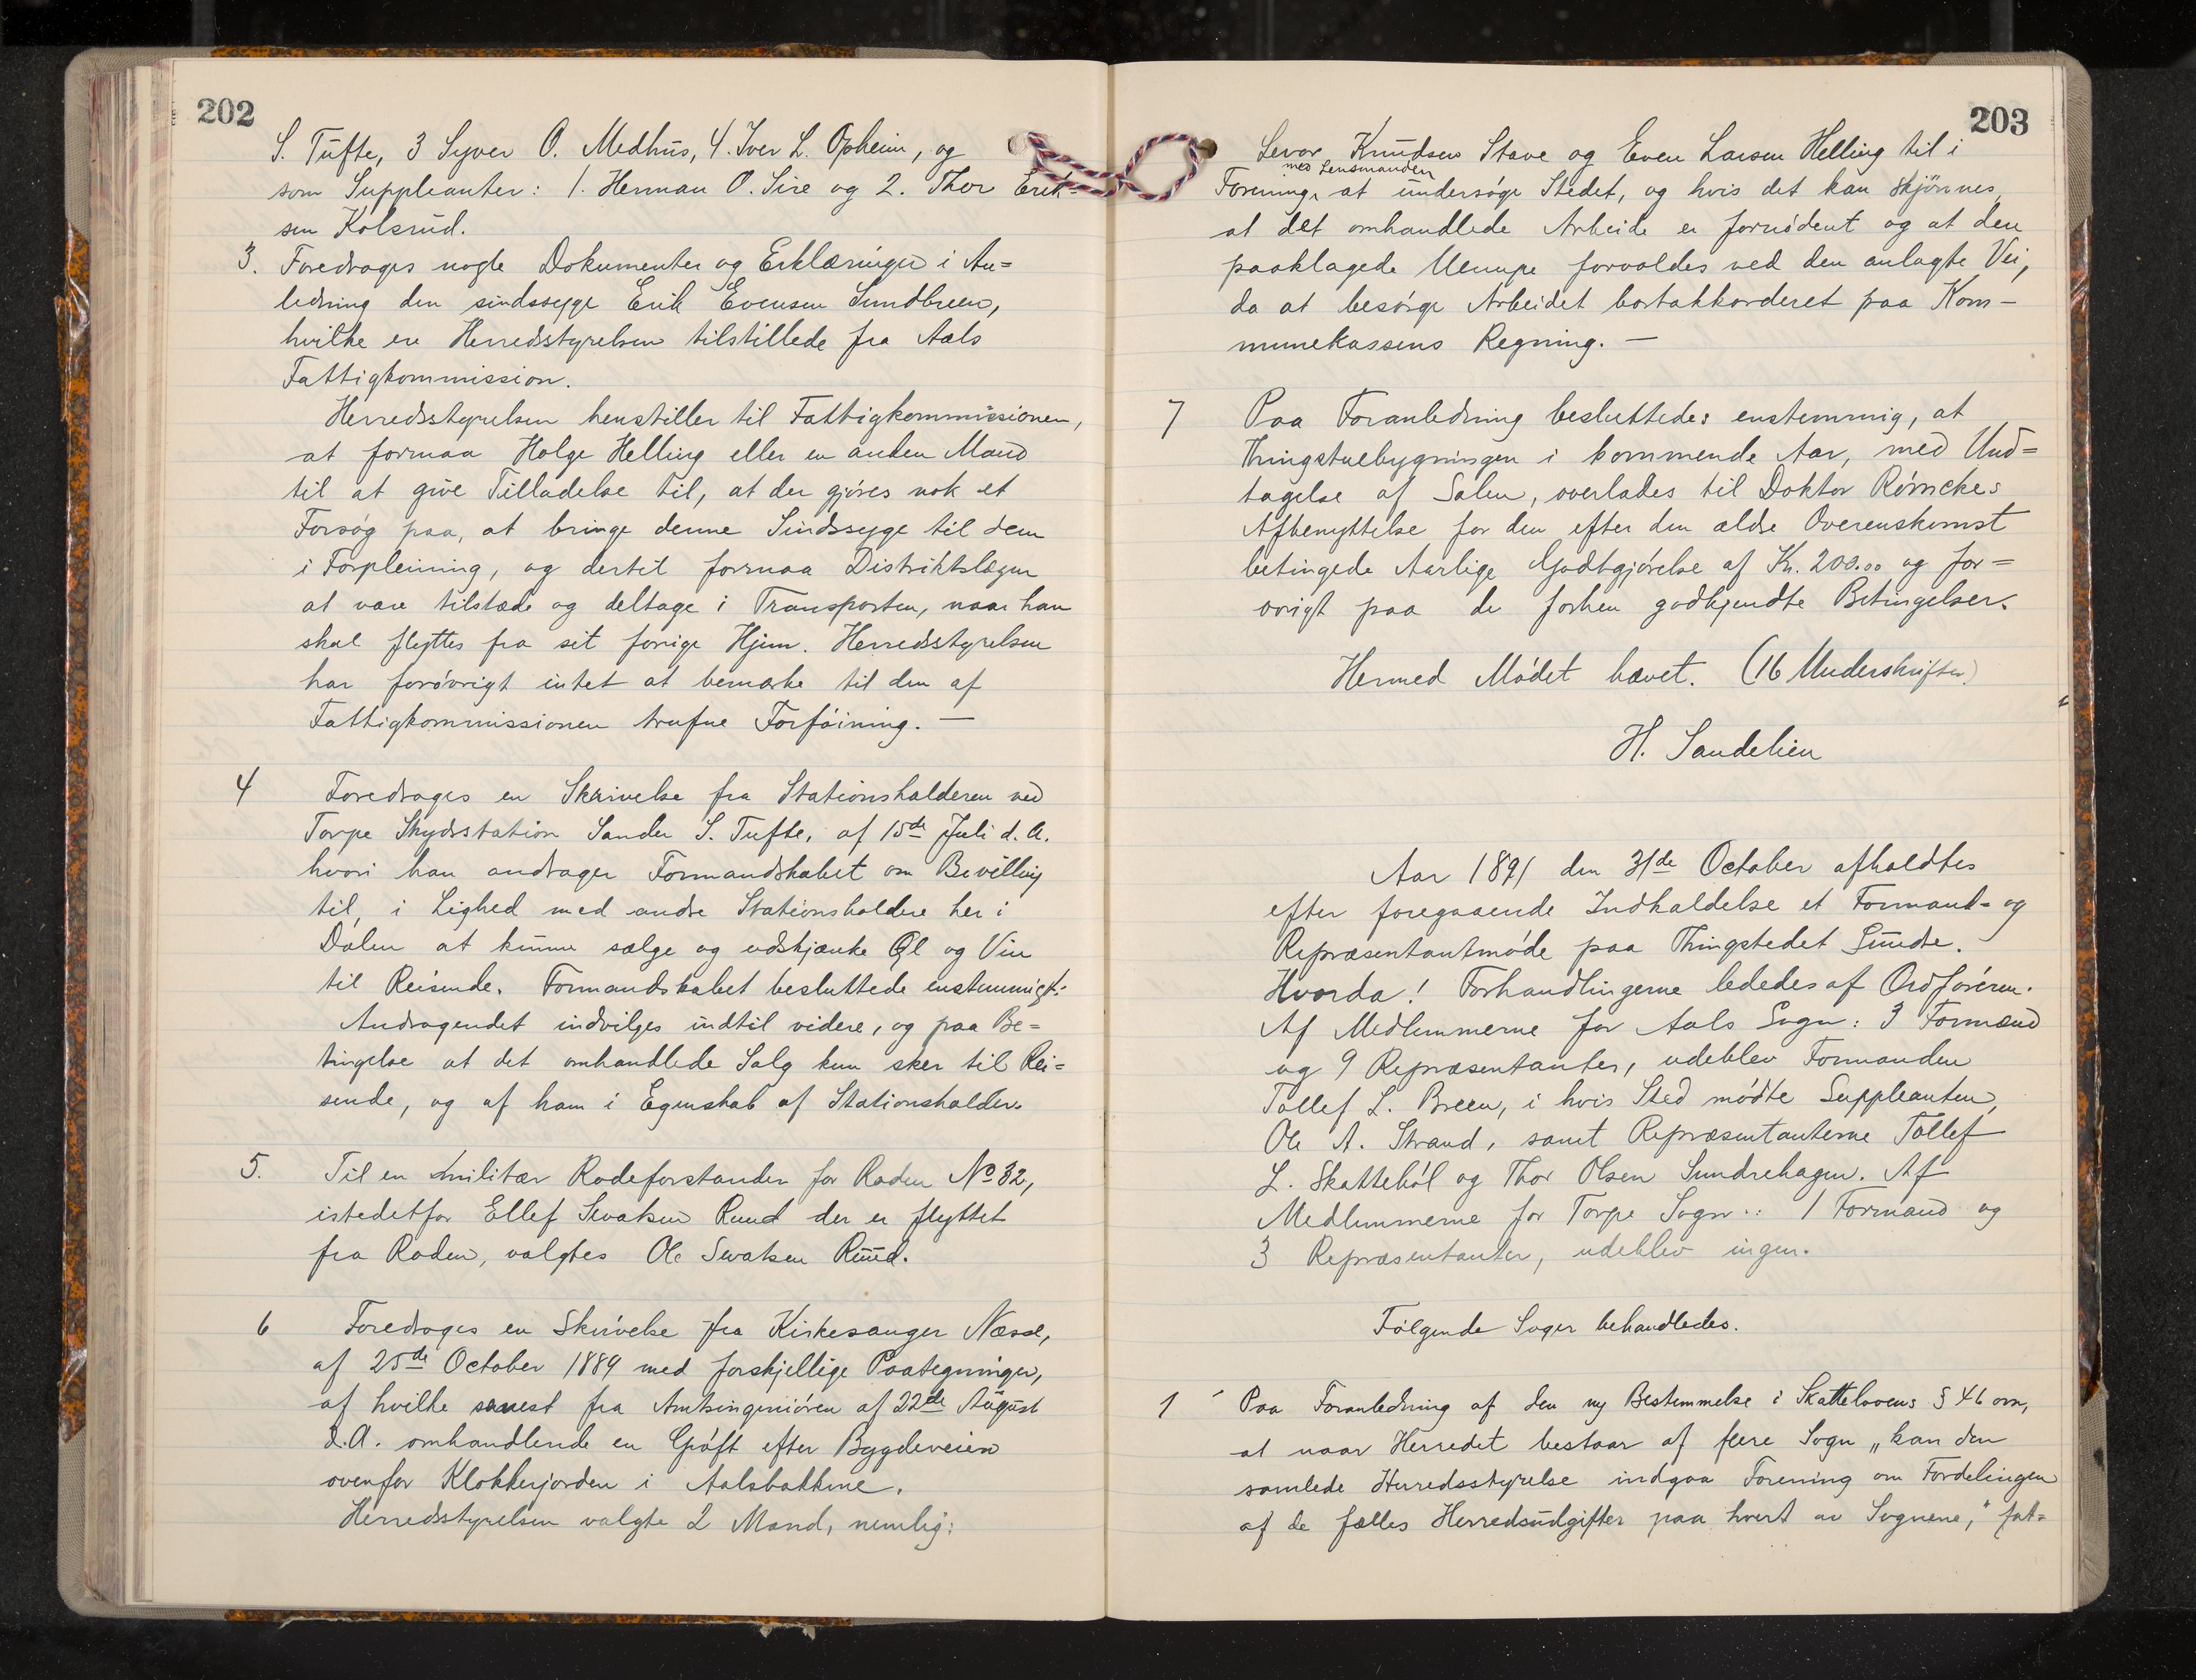 202
S. Tufte, 3 Syver O. Medhus, 4. Iver L. Opheim, og
som Suppleanter: 1. Herman O. Sire og 2. Thor Erik=
sen Kolsrud.
3. Foredroges nogle Dokumenter og Erklæringer i An=
ledning den sindssyge Erik Evensen Sundbreen,
hvilke ere Herredsstyrelsen tilstillede fra Aals
Fattigkommission.
Herredsstyrelsen henstiller til Fattigkommissionen,
at formaa Holge Helling eller en anden Mand
til at give Tilladelse til, at der gjøres nok et
Forsøg paa, at bringe denne Sindssyge til dem
i Forpleining, og dertil formaa Distriktslægen
at være tilstæde og deltage i Transporten, naar han
skal flyttes fra sit forrige Hjem. Herredsstyrelsen
har forøvrigt intet at bemærke til den af
Fattigkommissionen trufne Forføining. —
4 Foredroges en Skrivelse fra Stationsholderen ved
Torpe Skydsstation Sander S. Tufte, af 15de Juli d. A.
hvori han andrager Formandskabet om Bevilling
til, i Lighed med andre Stationsholdere her i
Dalen at kunne sælge og udskjænke Øl og Vin
til Reisende. Formandskabet besluttede enstemmigt:
Andragendet indvilges indtil videre, og paa Be=
tingelse at det omhandlede Salg kun sker til Rei=
sende, og af ham i Egenskab af Stationsholder.
5. Til en militær Rodeforstander for Roden No 32,
istedetfor Ellef Sevatsen Ruud der er flyttet
fra Roden, valgtes Ole Sevatsen Ruud.
6 Foredroges en Skrivelse fra Kirkesanger Næsse,
af 25de October 1889 med forskjellige Paategninger,
af hvilke senest fra Amtsingeniøren af 22de August
d.A. omhandlende en Grøft efter Bygdeveien
ovenfor Klokkerjorden i Aalsbakkene.
Herredsstyrelsen valgte 2 Mænd, nemlig:
203
Levor Knudsen Stave og Even Larsen Helling til i
med Lensmanden
Forening at undersøge Stedet, og hvis det kan skjønnes,
at det omhandlede Arbeide er fornødent og at den
paaklagede Ulempe forvoldes ved den anlagte Vei,
da at besørge Arbeidet bortakkorderet paa Kom-
munekassens Regning. —
7 Paa Foranledning besluttedes enstemmig, at
Thingstuebygningen i kommende Aar, med Und=
tagelse af Salen, overlades til Doktor Rømckes
Afbenyttelse for den efter den ældre Overenskomst
betingede Aarlige Godtgjørelse af Kr. 200.00 og for=
øvrigt paa de forhen godkjendte Betingelser.
Hermed Mødet hævet. (16 Underskrifter)
H. Sandelien
Aar 1891 den 31de October afholdtes
efter foregaaende Indkaldelse et Formand- og
Repræsentantmøde paa Thingstedet Sundre.
Hvorda! Forhandlingerne lededes af Ordføreren.
Af Medlemmerne for Aals Sogn: 3 Formænd
og 9 Repræsentanter, udeblev Formanden
Tollef L. Breen, i hvis Sted mødte Suppleanten,
Ole A. Strand, samt Repræsentanterne Tollef
L. Skattebøl og Thor Olsen Sundrehagen. Af
Medlemmerne for Torpe Sogn: 1 Formand og
3 Repræsentanter, udeblev ingen.
Følgende Sager behandledes.
1 Paa Foranledning af den ny Bestemmelse i Skattelovens § 46 om,
at naar Herredet bestaar af flere Sogn „kan den
samlede Herredsstyrelse indgaa Forening om Fordelingen
af de fælles Herredsudgifter paa hvert av Sognene," fat=